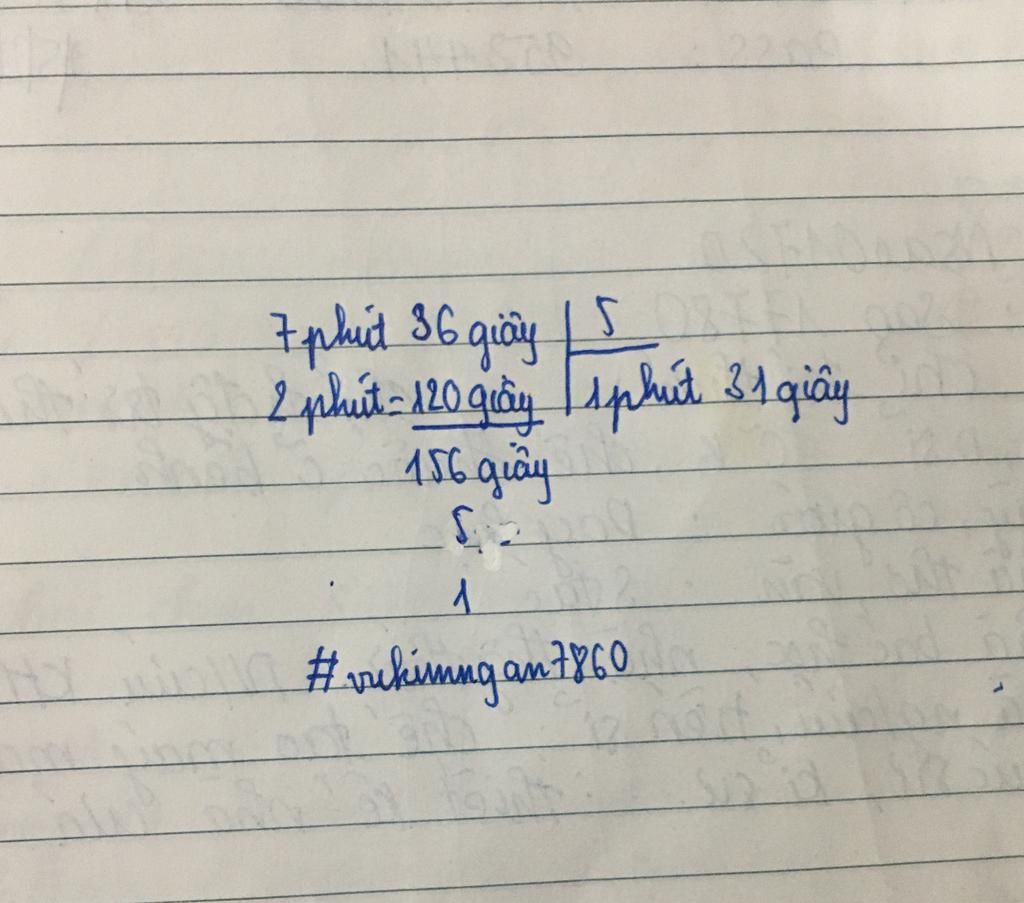 7 phút 36 giây 5
2 phút = 120 giây 1 phút 31 giây
156 giây
5
1
#vukimngan7860